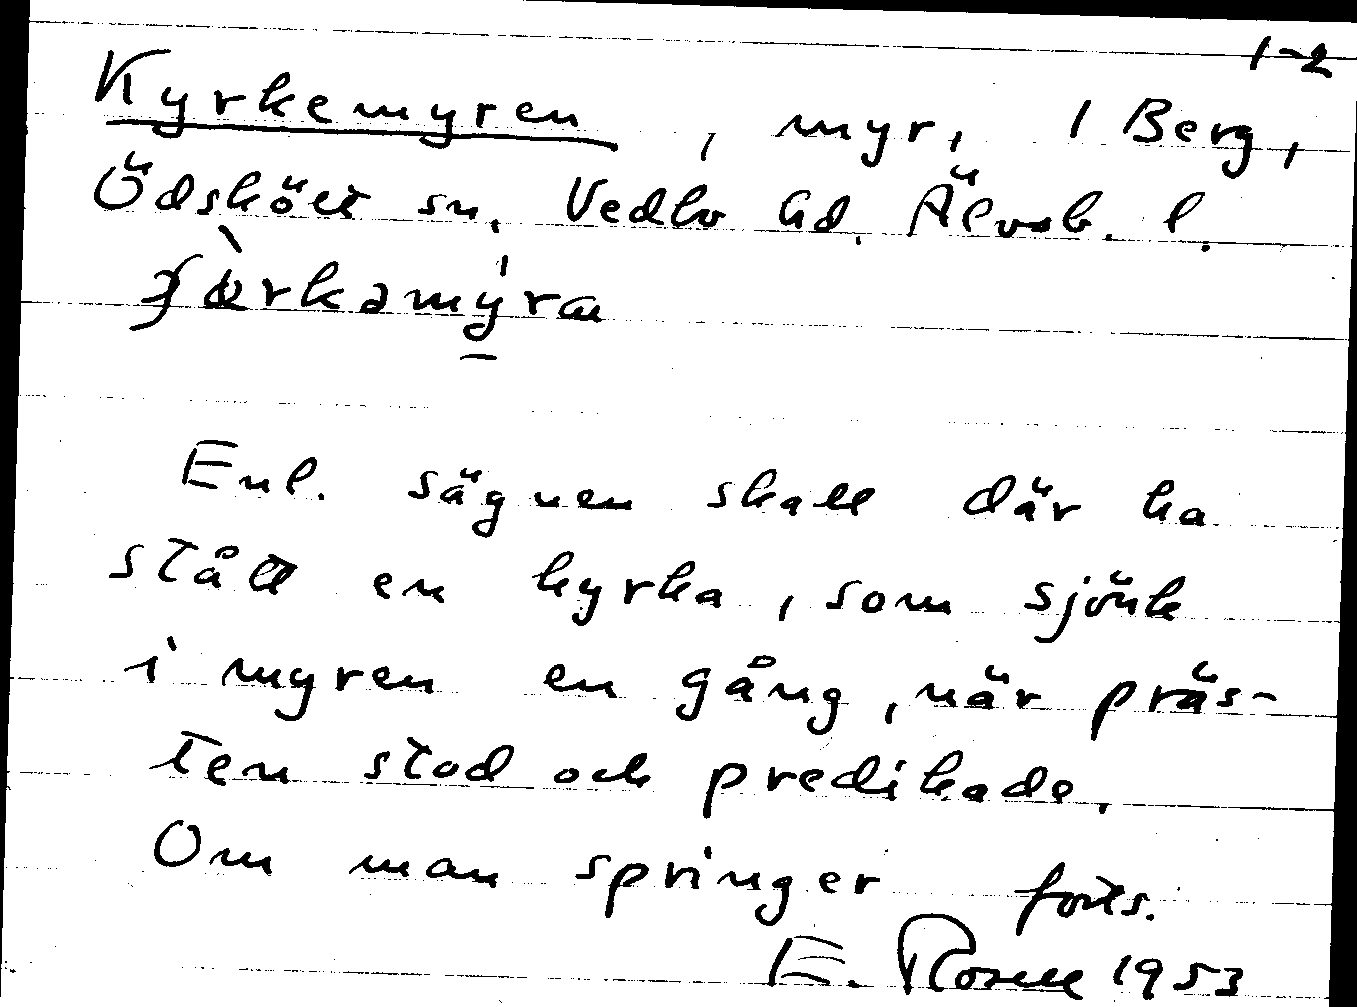 1-2
Kyrkemyren, myr, 1 Berg,
Ödskölt sn. Vedbo hd. Älvsb. l.
Enl. sägnen skall där ha
stått en kyrka, som sjönk
i myren en gång, när präs-
ten stod och predikade.
Om man springer forts.
E. Rosell 1953